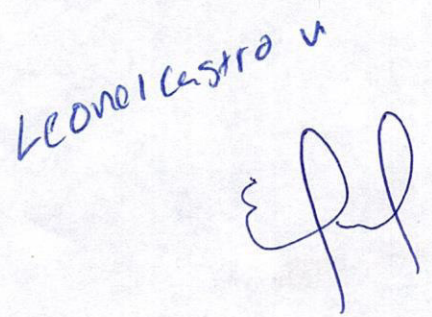 Leonel Castro V